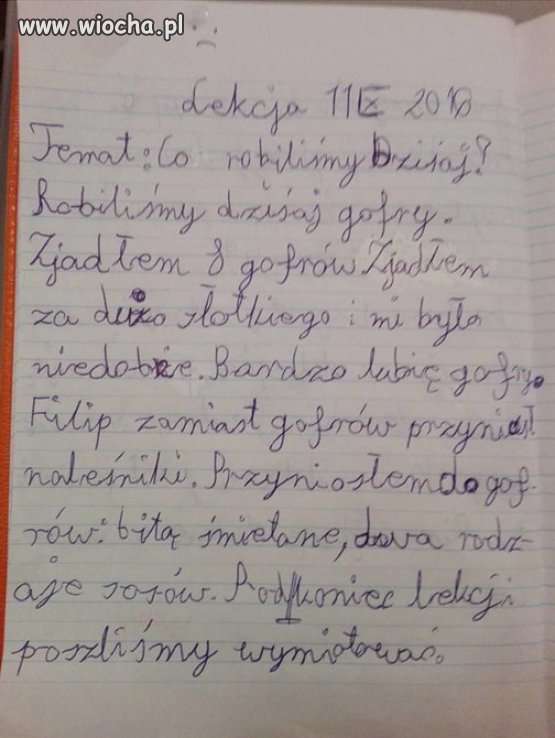 www.wiocha.pl
Lekcja 11 IX 2010
Temat: Co robiliśmy Dzisiaj?
Robiliśmy dzisiaj gofry.
Zjadłem 8 gofrów. Zjadłem
za dużo słotkiego i mi było
niedobrze. Bardzo lubię gofry.
Filip zamiast gofrów przyniusł
naleśniki. Przyniosłem do gof-
rów: bitą śmietane, dwa rodz-
aje sosów. Pod koniec lekcji
poszliśmy wymiotować.